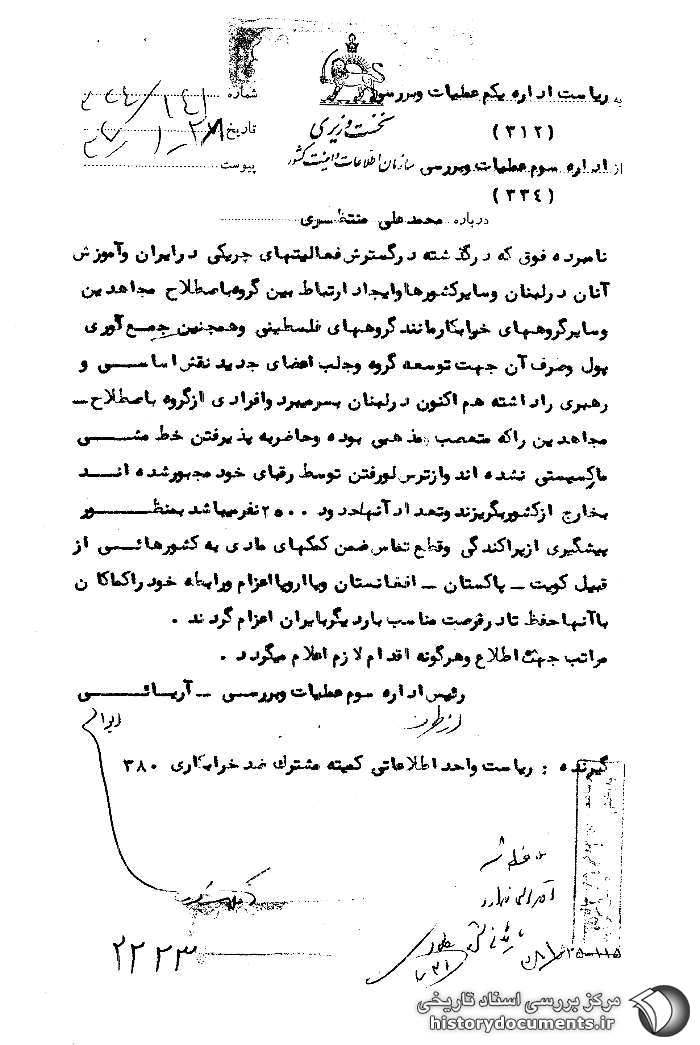 به ریاست اداره یکم عملیات وبررسی
(۳۱۲)
شماره
نخست وزیری
تاریخ
از اداره سوم عملیات وبررسی
سازمان اطلاعات و امنیت کشور
پیوست
(۳۳٤)
درباره محمد علی منتظری
نامبرده فوق که درگذشته درگسترش فعالیتهای چریکی درایران وآموزش
آنان درلبنان وسایرکشورهاوایجاد ارتباط بین گروه باصطلاح مجاهدین
وسایرگروههای خرابکارمانند گروههای فلسطینی وهمچنین جمع آوری
پول وصرف آن جهت توسعه گروه وجلب اعضای جدید نقش اساسی و
رهبری راداشته هم اکنون درلبنان بسرمیبرد وافرادی ازگروه باصطلاح ـ
مجاهدین راکه متعصب مذهبی بوده وحاضربه پذیرفتن خط مشی
مارکسیستی نشده اند وازترس لورفتن توسط رقبای خود مجبورشده اند
بخارج ازکشوربگریزند وتعداد آنهاحدود ۲۵۰۰ نفرمیباشد بمنظور
پیشگیری ازپراکندگی وقطع تماس ضمن کمکهای مادی به کشورهائی از
قبیل کویت ـ پاکستان ـ افغانستان ویااروپااعزام ورابطه خودراکماکان
باآنهاحفظ تادرفرصت مناسب باردیگربایران اعزام گردند .
مراتب جهت اطلاع وهرگونه اقدام لازم اعلام میگردد .
رئیس اداره سوم عملیات وبررسی ـ آریائی
از طرف
گیرنده : ریاست واحد اطلاعاتی کمیته مشترک ضد خرابکاری ۳۸۰
۲۲۲۳
۳۵-۱۱۵
مرکز بررسی اسناد تاریخی
historydocuments.ir